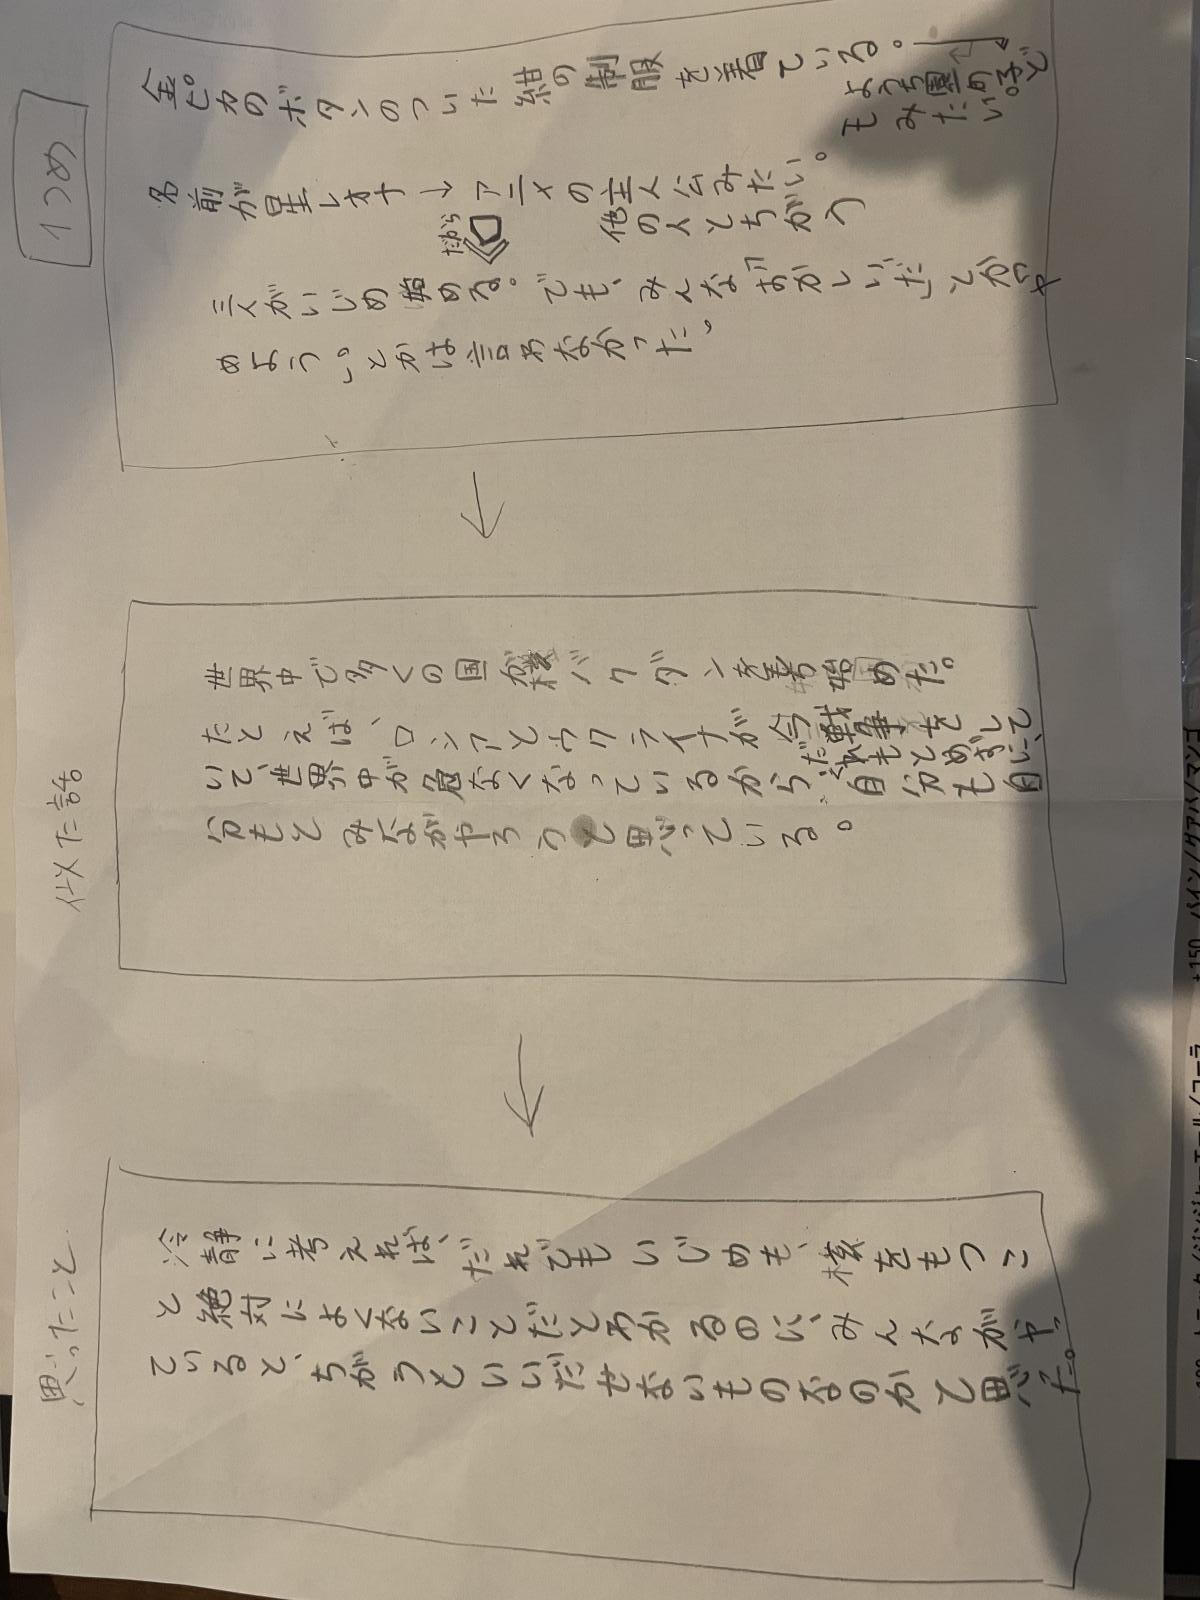 1つめ
金ピカのボタンのついた紺の制服を着ている。
ようち園の子ど
もみたい。
名前が星レオナ→アニメの主人公みたい。
他の人とちがう
だから
三人がいじめ始める。でも、みんな「おかしいだ」とか「や
めよう。」とかは言わなかった。
似た話
世界中で多くの国が核バクダンを持ち始めた。
たとえば、ロシアとウクライナが今戦争をして
いて、世界中が危なくなっているから、自分も自
だれもとめずに、
分もとみながやろうと思っている。
思ったこと
冷静に考えれば、だれでもいじめも、核をもつこ
と絶対によくないことだとわかるのに、みんながやっ
ていると、ちがうといいだせないものなのかと思っ
た。